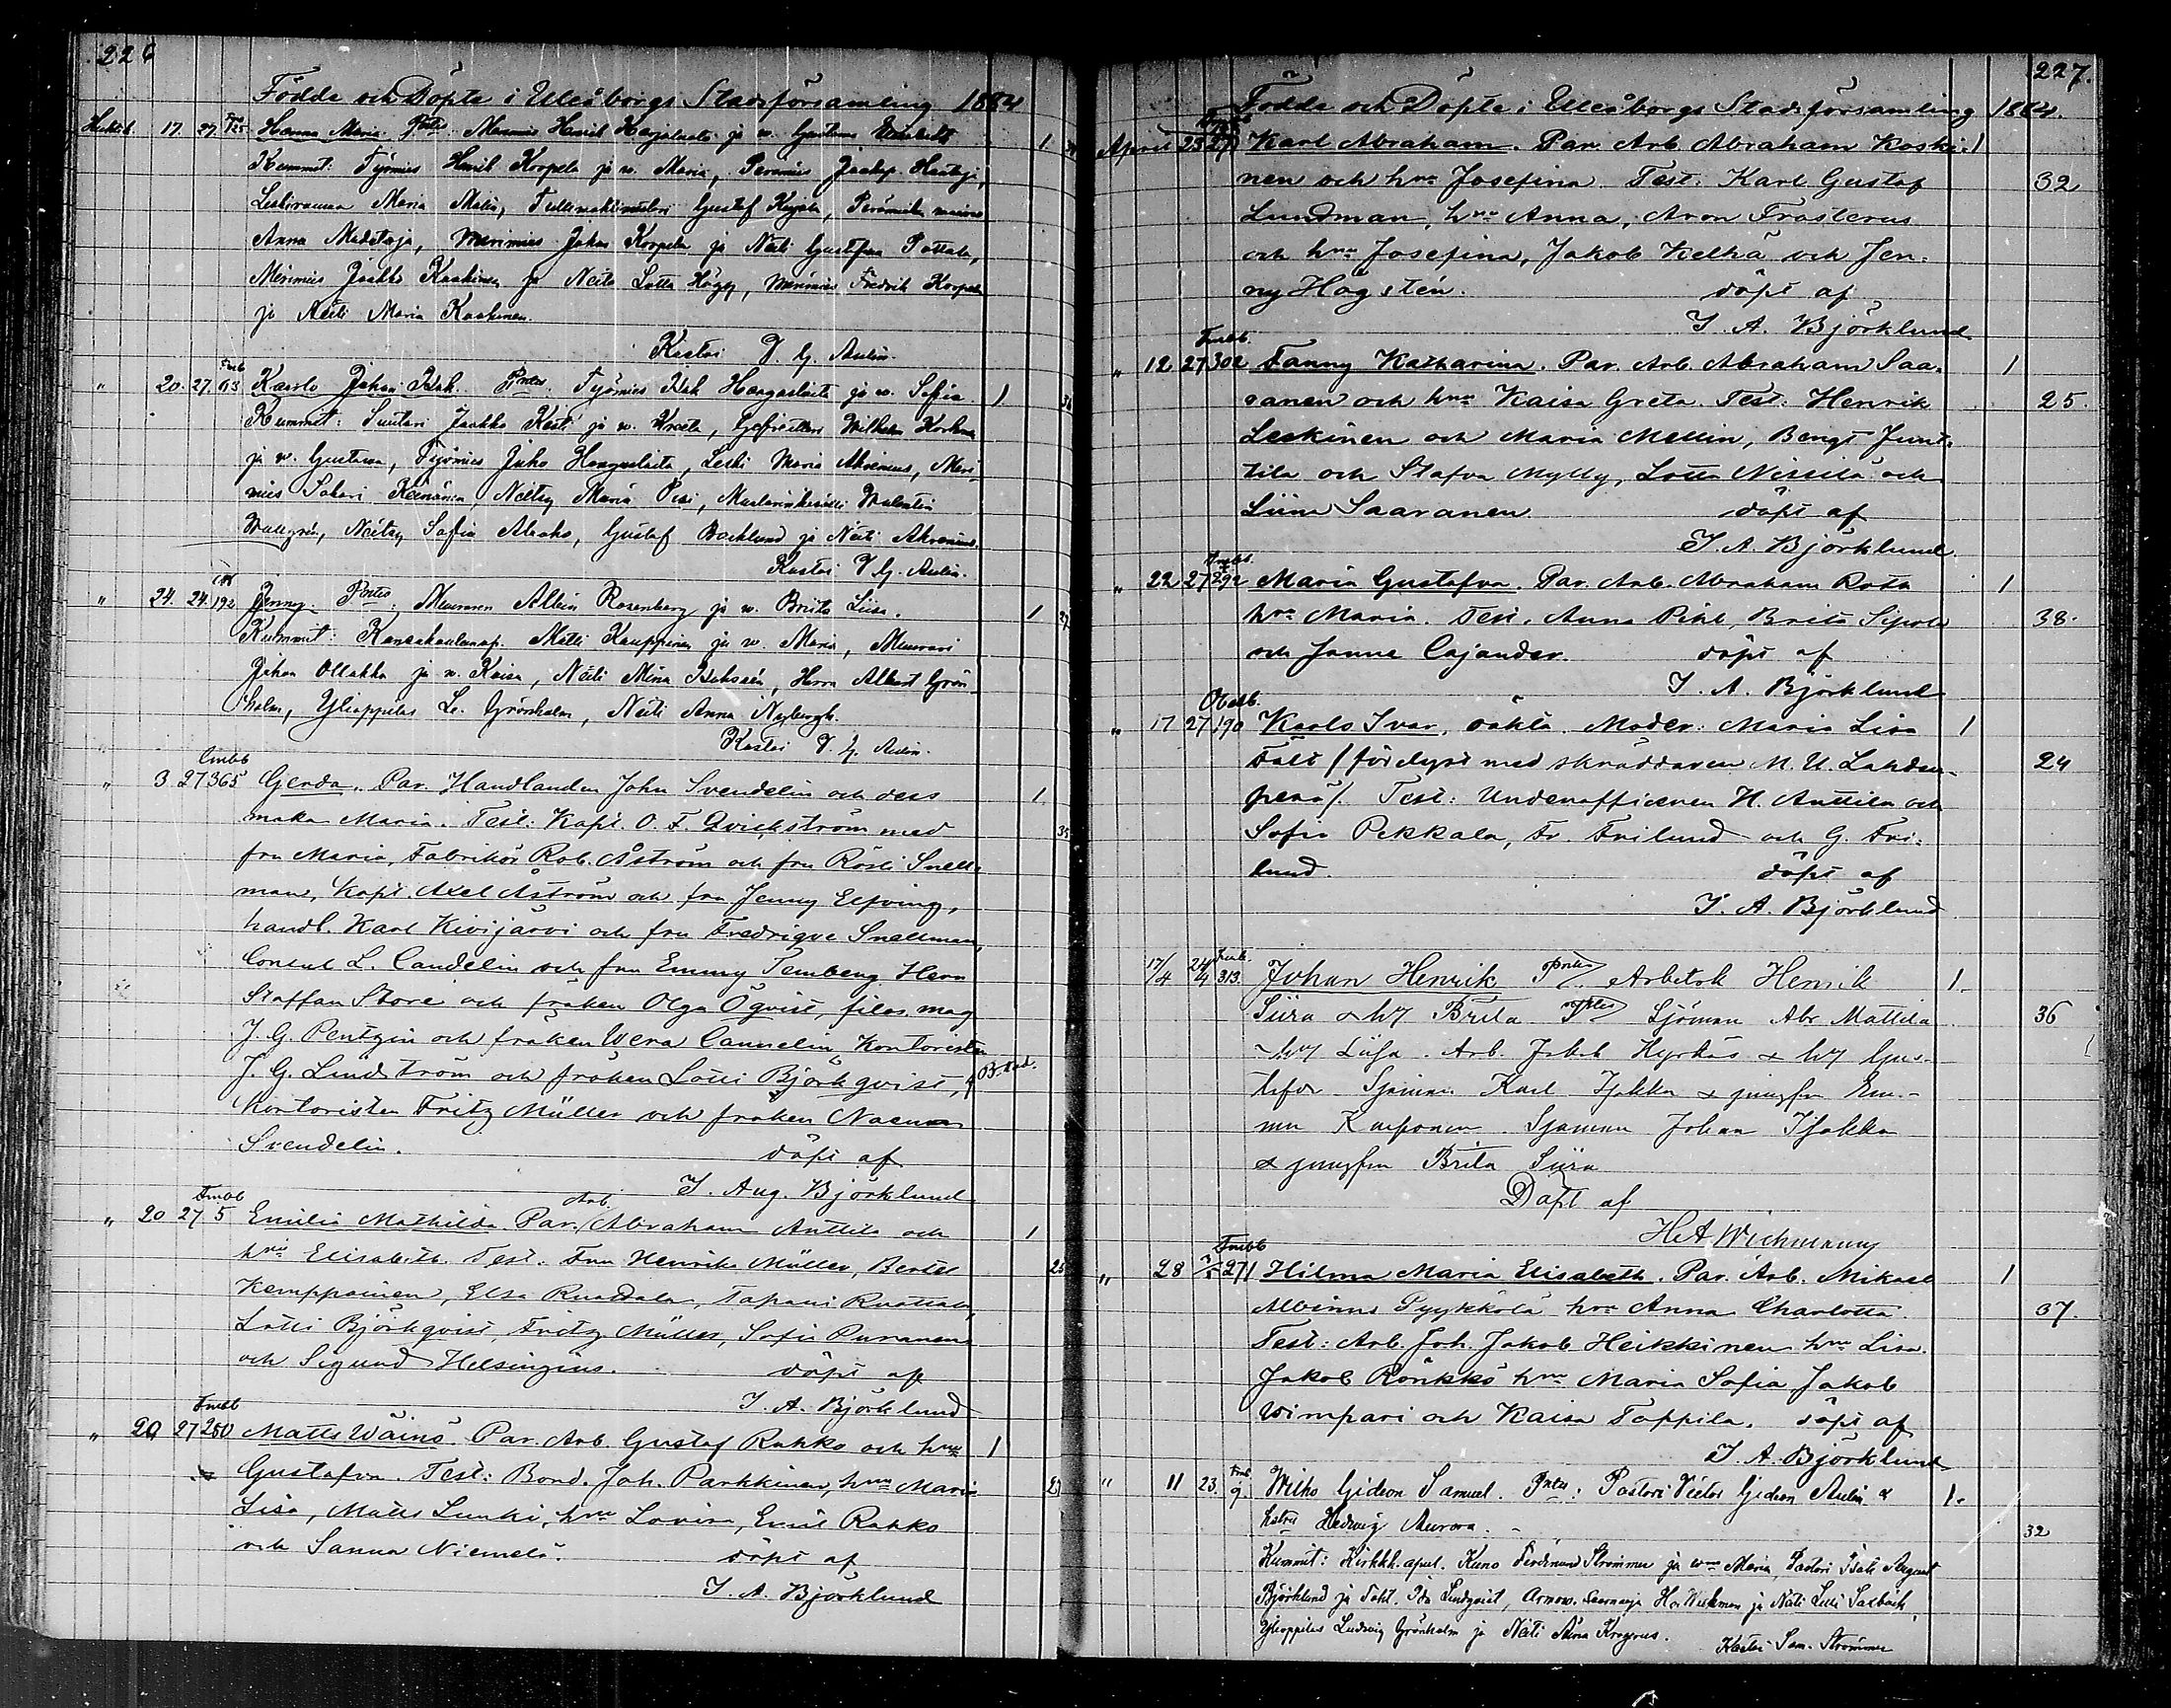 226
Födde och Döpte i Uleåborgs Stadsförsamling 1884
Huhtik. 17. 27. 125 Hanna Maria. Prtes. Merimies Henrik Harjulaeta ja w. Gustava 1
Kummit: Työmies Henrik Korpela ja w. Maria, Perämies Jaakop Hautaja,
Leskirouwa Maria Matia, Gustaf, Perämiehen waimo
Anna Madetoja, Merimies Johan Korpela ja Neiti Gustafva Pottala,
Merimies Jaakko Kaakinen ja Neito Lotta Högg, Merimies Fredrik Korpela
ja Neiti Maria Kaakinen.
Kastoi V. G. Aulin.
" 20. 27. 63 Kaarlo Johan Isak. Prtes. Työmies Isak Haagaslaita ja w. Sofia 1
Kummit: Suutari Jaakko Kesti ja w. Kreeta, Wilhelm
ja w. Gustava, Työmies Juho Haagaslaita, Leski Maria Ahrenius, Meri-
mies Sakari Keinänen, Neitsy Maria Pesi, Walentin
Wallgrén, Neitsy Sofia Alaoho, Gustaf Backlund ja Neiti Ahrenius.
Kastoi V. G. Aulin.
" 24. 24. 192 Jenny. Prtes: Muurari Albin Rosenberg ja w. Briita Liisa. 1
Kummit: Kansakoulunop. Matti Kauppinen ja w. Maria, Muurari
Johan Ollakka ja w. Kaisa, Neiti Mina, Herra Albert Grön-
holm, Ylioppilas L. Grönholm, Neiti Anna Nybergh.
Kastoi V. G. Aulin.
" 3 27 365 Gerda. Par. Handlanden John Svendelin och dess 1
maka Maria. Test: Kapt. O. F. Qvickström med 35
fru Maria, Fabrikör Rob. Åström och fru Rosli Snell-
man, Kapt. Axel Åström och fru Jenny Elfving,
handl. Karl Kivijärvi och fru Fredrique Snellman,
Consul L. Candelin och fru Emmy Ternberg Herr
Staffan Store och fröken Olga Öqvist, filos. mag
J. G. Pentzin och fröken Wera Cannelin, Kontoristen
J. G. Lindström och fröken Lotti Björkqvist,
Kontoristen Fritz Müller och fröken Naema
Svendelin. döpt af
I. Aug. Björklund
Fmbb
" 20 27 5 Emilia Mathilda. Par. Arb. Abraham Anttila och 1
hru Elisabeth. Test. Fru Henrika Müller, Bertel 25
Kemppainen, Elsa Ruottala, Tapani Ruottala,
Lotti Björkqvist, Fritz Müller, Sofia Puranen
och Sigurd Helsingius. döpt af
I. A. Björklund
Fmbb
" 20 27 250 Matts Wäinö. Par. Arb. Gustaf Rahko och hru 1
Gustafva. Test: Bond. Joh. Parkkinen, hru Maria 29
Lisa, Matts Lunki, hru Lovisa, Emil Rahko
och Sanna Niemelä. döpt af
I. A. Björklund
227.
Födde och Döpte i Uleåborgs Stadsförsamling 1884.
April 23 27 Karl Abraham. Par. Arb. Abraham Koski- 1
nen och hru Josefina. Test: Karl Gustaf 32
Lundman, hru Anna, Aron Frosterus
och hru Josefina, Jakob Kelhä och Jen-
ny Högstén. döpt af
I. A. Björklund
Fmbb.
" 12 27 302 Fanny Katharina. Par. Arb. Abraham Saa- 1
ranen och hru Kaisa Greta. Test: Henrik 25.
Leskinen och Maria Mellin, Bengt Junt-
tila och Stafva Mylly, Lotta Nissilä och
Liina Saaranen. döpt af
I. A. Björklund.
Fmbb.
" 22 27 292 Maria Gustafva. Par. Arb. Abraham Rota 1
hru Maria. Test. Anna Pihl, Brita Sipola 38.
och Janne Cajander. döpt af
I. A. Björklund
Obestb.
" 17 27 190 Karls Ivar, oäkta. Moder: Maria Lisa 1
Fält / förelyst med skräddaren M. U. Lahden- 24
perä/. Test: Underofficeren H. Anttila och
Sofia Pekkala, Fr. Frilund och G. Fri-
lund. döpt af
I. A. Björklund
17/4 24/4 313. Johan Henrik Prtes. Arbetsk Henrik 1.
Siira & h/ Brita Sjöman Abr Mattila 36
h/ Lisa. Arb. Jakob Hyrkäs & h/ Gus-
tafva Sjöman Karl Isakka & jungfru Em-
ma Karponen. Sjöman Johan Isakka
& jungfru Brita Siira
Döpt af
H A Wichmann
Fmbb
" 28 271 Hilma Maria Elisabeth. Par. Arb. Mikael 1
Albinus Pyykkölä hru Anna Charlotta. 37.
Test: Arb. Joh. Jakob Heikkinen hru Lisa.
Jakob Rönkkö hru Maria Sofia, Jakob
Wimpari och Kaisa Toppila. döpt af
I. A. Björklund
" 11 23. 9 Wilho Gideon Samuel. Prtes: Pastori Victor Gideon Aulin & 1.
Hedwig Aurora. 32
Kummit: Kirkkh. apul. Kuno Ferdinand Strömmer ja w. Maria, Pastori Isak August
Björklund ja Ida Lindqvist, Armow. Saarnaaja H. Wichman ja Neiti Lilli Saxbäck,
Ylioppilas Ludwig Grönholm ja Neiti Alma Krogerus. Kastoi Sam. Strömmer